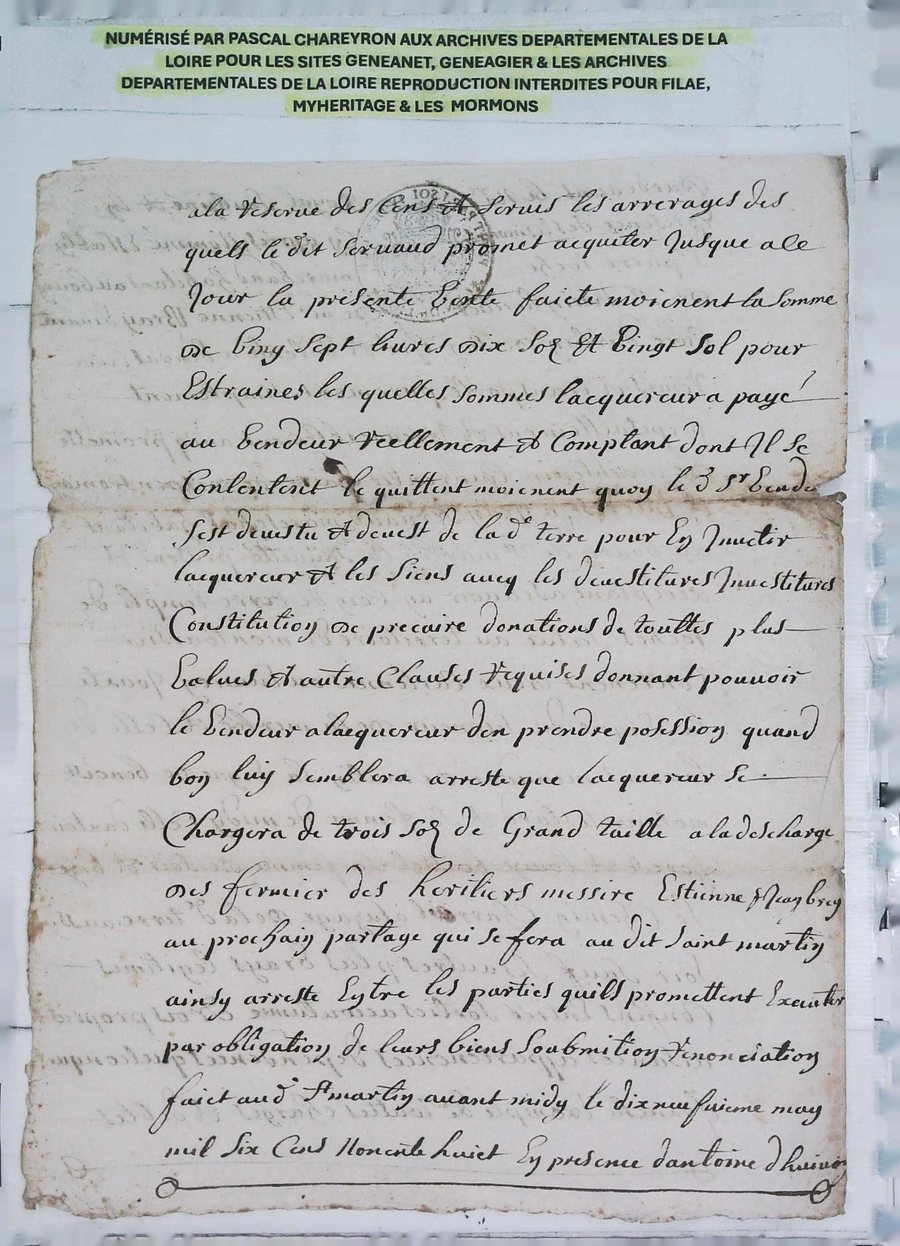 NUMÉRISÉ PAR PASCAL CHAREYRON AUX ARCHIVES DEPARTEMENTALES DE LA
LOIRE POUR LES SITES GENEANET, GENEAGIER & LES ARCHIVES
DEPARTEMENTALES DE LA LOIRE REPRODUCTION INTERDITES POUR FILAE,
MYHERITAGE & LES MORMONS
a la reserve des Cens et servis les arrerages des
quels le dit promet acquiter Jusque a le
Jour la presente vente faicte moienent la somme
de ving sept livres dix solz et vingt sol pour
Estraines les quelles sommes lacquereur a payé
au vendeur reellement et Comptant dont Il se
Contentent le quittent moienent quoy le d sr vendr
sest devestu et devest de la de terre pour En Investir
lacquereur et les siens avecq les devestitures Investitures
Constitution de precaire donations de touttes plus
values et autre Clauses requises donnant pouvoir
le vendeur a lacquereur den prendre posession quand
bon luy semblera arreste que lacquereur se
Chargera de trois solz de Grand taille a la descharge
des fermier des heritiers messire Estienne
au prochain partage qui se fera au dit saint martin
ainsy arreste Entre les parties quils promettent Executer
par obligation de leurs biens soubmition renonciation
faict aud St martin avant midy le dix neufvieme may
mil six Cens nonente huict En presence dantoine